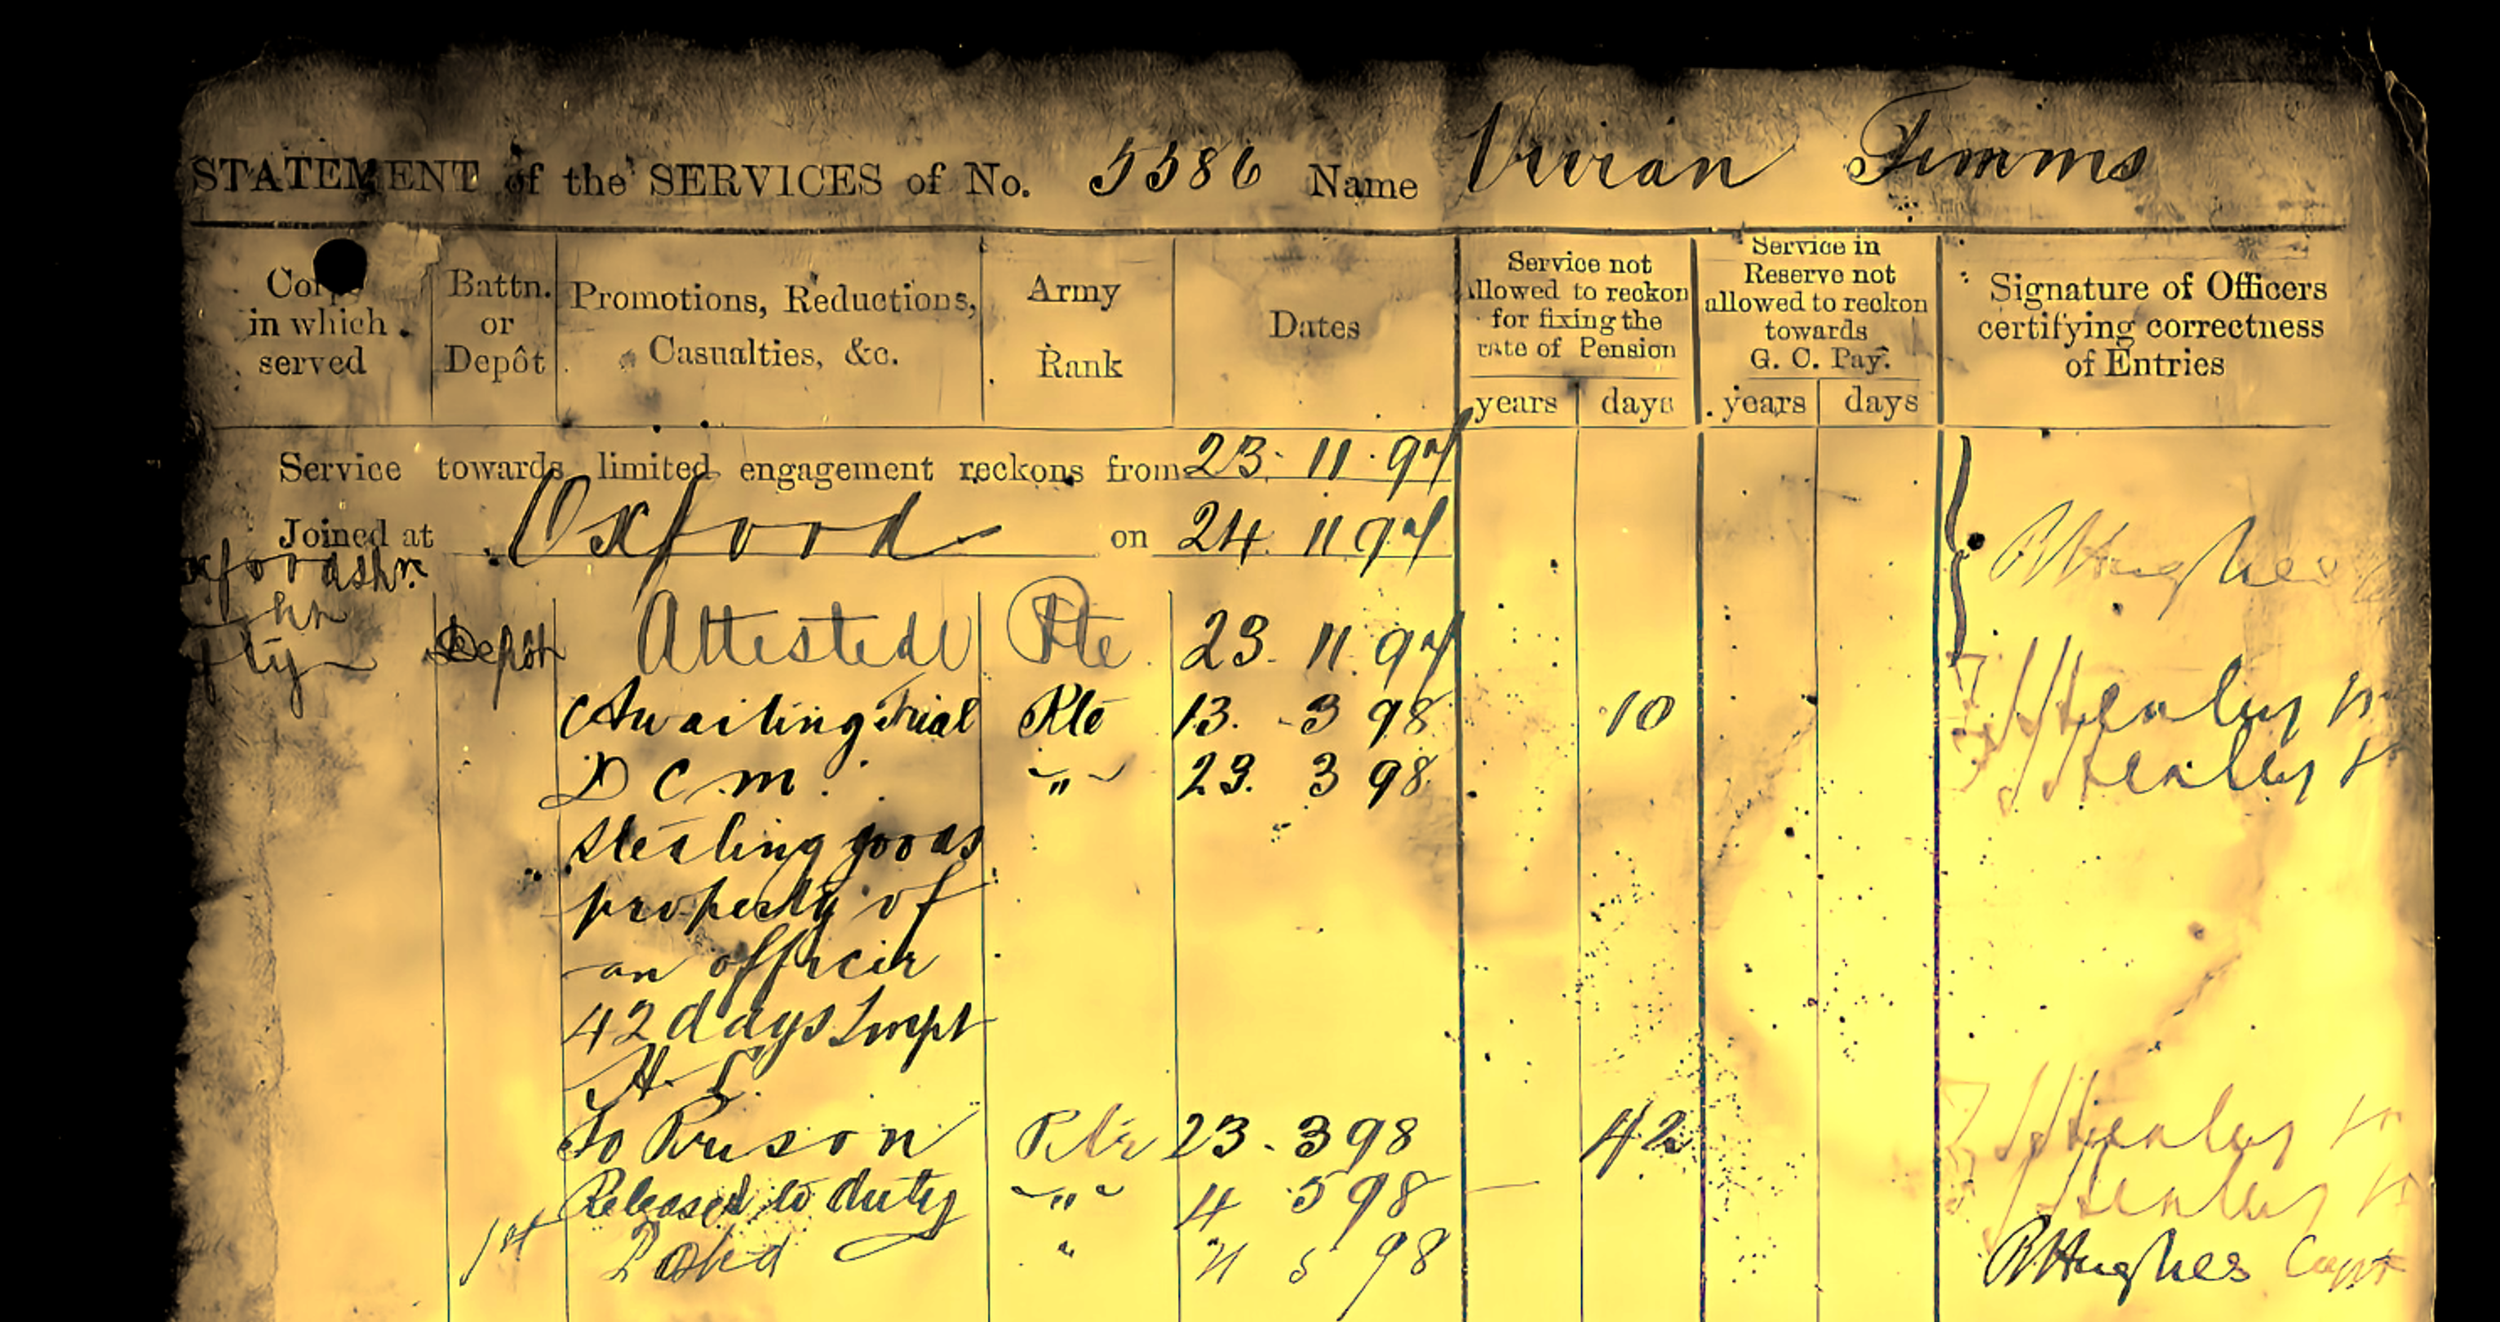 STATEMENT of the SERVICES of No. 5586 Name Vivian Timms
Corps in which served
Battn. or Depôt
Promotions, Reductions, Casualties, &c.
Army Rank
Dates
Service not allowed to reckon for fixing the rate of Pension
years days
Service in Reserve not allowed to reckon towards G. C. Pay.
years days
Signature of Officers certifying correctness of Entries
Service towards limited engagement reckons from 23. 11. 97
Joined at Oxford on 24. 11 97
Oxfordsh. Depôt Attested Pte 23. 11. 97
Awaiting trial Pte 13. 3 98 10
D C M. " 23. 3 98
Stealing goods
property of
an officer
42 days Impt
H. L.
To Prison Pte 23. 3 98 42
Released to duty " 4 5 98
1st Posted " 5 98 Hughes Capt